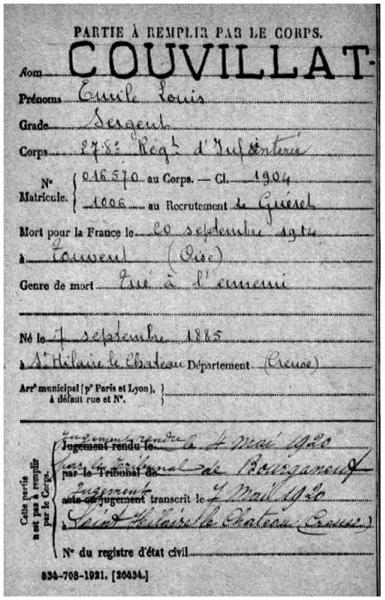 PARTIE À REMPLIR PAR LE CORPS.
Nom COUVILLAT
Prénoms Emile Louis
Grade Sergent
Corps 278e Régt d'Infanterie
N° Matricule. 016570 au Corps. — Cl. 1904
1006 au Recrutement de Guéret
Mort pour la France le 20 septembre 1914
à Touvent (Oise)
Genre de mort Tué à l'ennemi
Né le 7 septembre 1885
à St Hilaire le Chateau Département (Creuse)
Arrt municipal (pr Paris et Lyon),
à défaut rue et N°.
Cette partie n'est pas à remplir par le Corps.
Jugement rendu
Jugement rendu le le 4 mai 1920
par le Tribunal de Bourganeuf
par le Tribunal
Jugement
acte ou jugement transcrit le 7 Mai 1920
à Saint Hilaire le Chateau (Creuse)
N° du registre d'état civil
534-708-1921. [26434.]